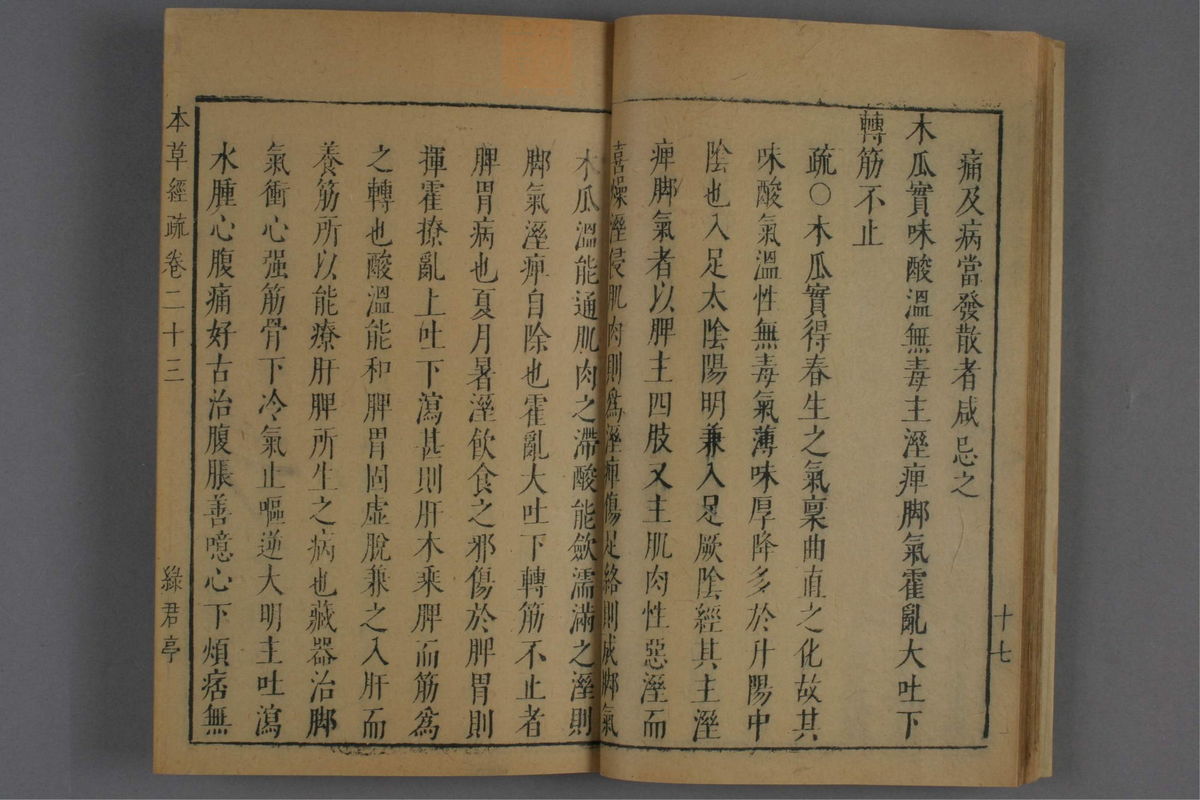 痛及病當發散者咸忌之
木瓜實味酸溫無毒主溼痺脚氣霍亂大吐下
轉筋不止
疏○木瓜實得春生之氣稟曲直之化故其
味酸氣溫性無毒氣薄味厚降多於升陽中
陰也入足太陰陽明兼入足厥陰經其主溼
痺脚氣者以脾主四肢又主肌肉性惡溼而
喜燥溼侵肌肉則爲溼痺傷足絡則成脚氣
木瓜溫能通肌肉之滯酸能歛濡滿之溼則
脚氣溼痺自除也霍亂大吐下轉筋不止者
脾胃病也夏月暑溼飲食之邪傷於脾胃則
揮霍撩亂上吐下瀉甚則肝木乘脾而筋爲
之轉也酸溫能和脾胃固虛脫兼之入肝而
養筋所以能療肝脾所生之病也藏器治脚
氣衝心强筋骨下冷氣止嘔逆大明主吐瀉
水腫心腹痛好古治腹脹善噫心下煩痞無
十七
本草經疏卷二十三
綠君亭